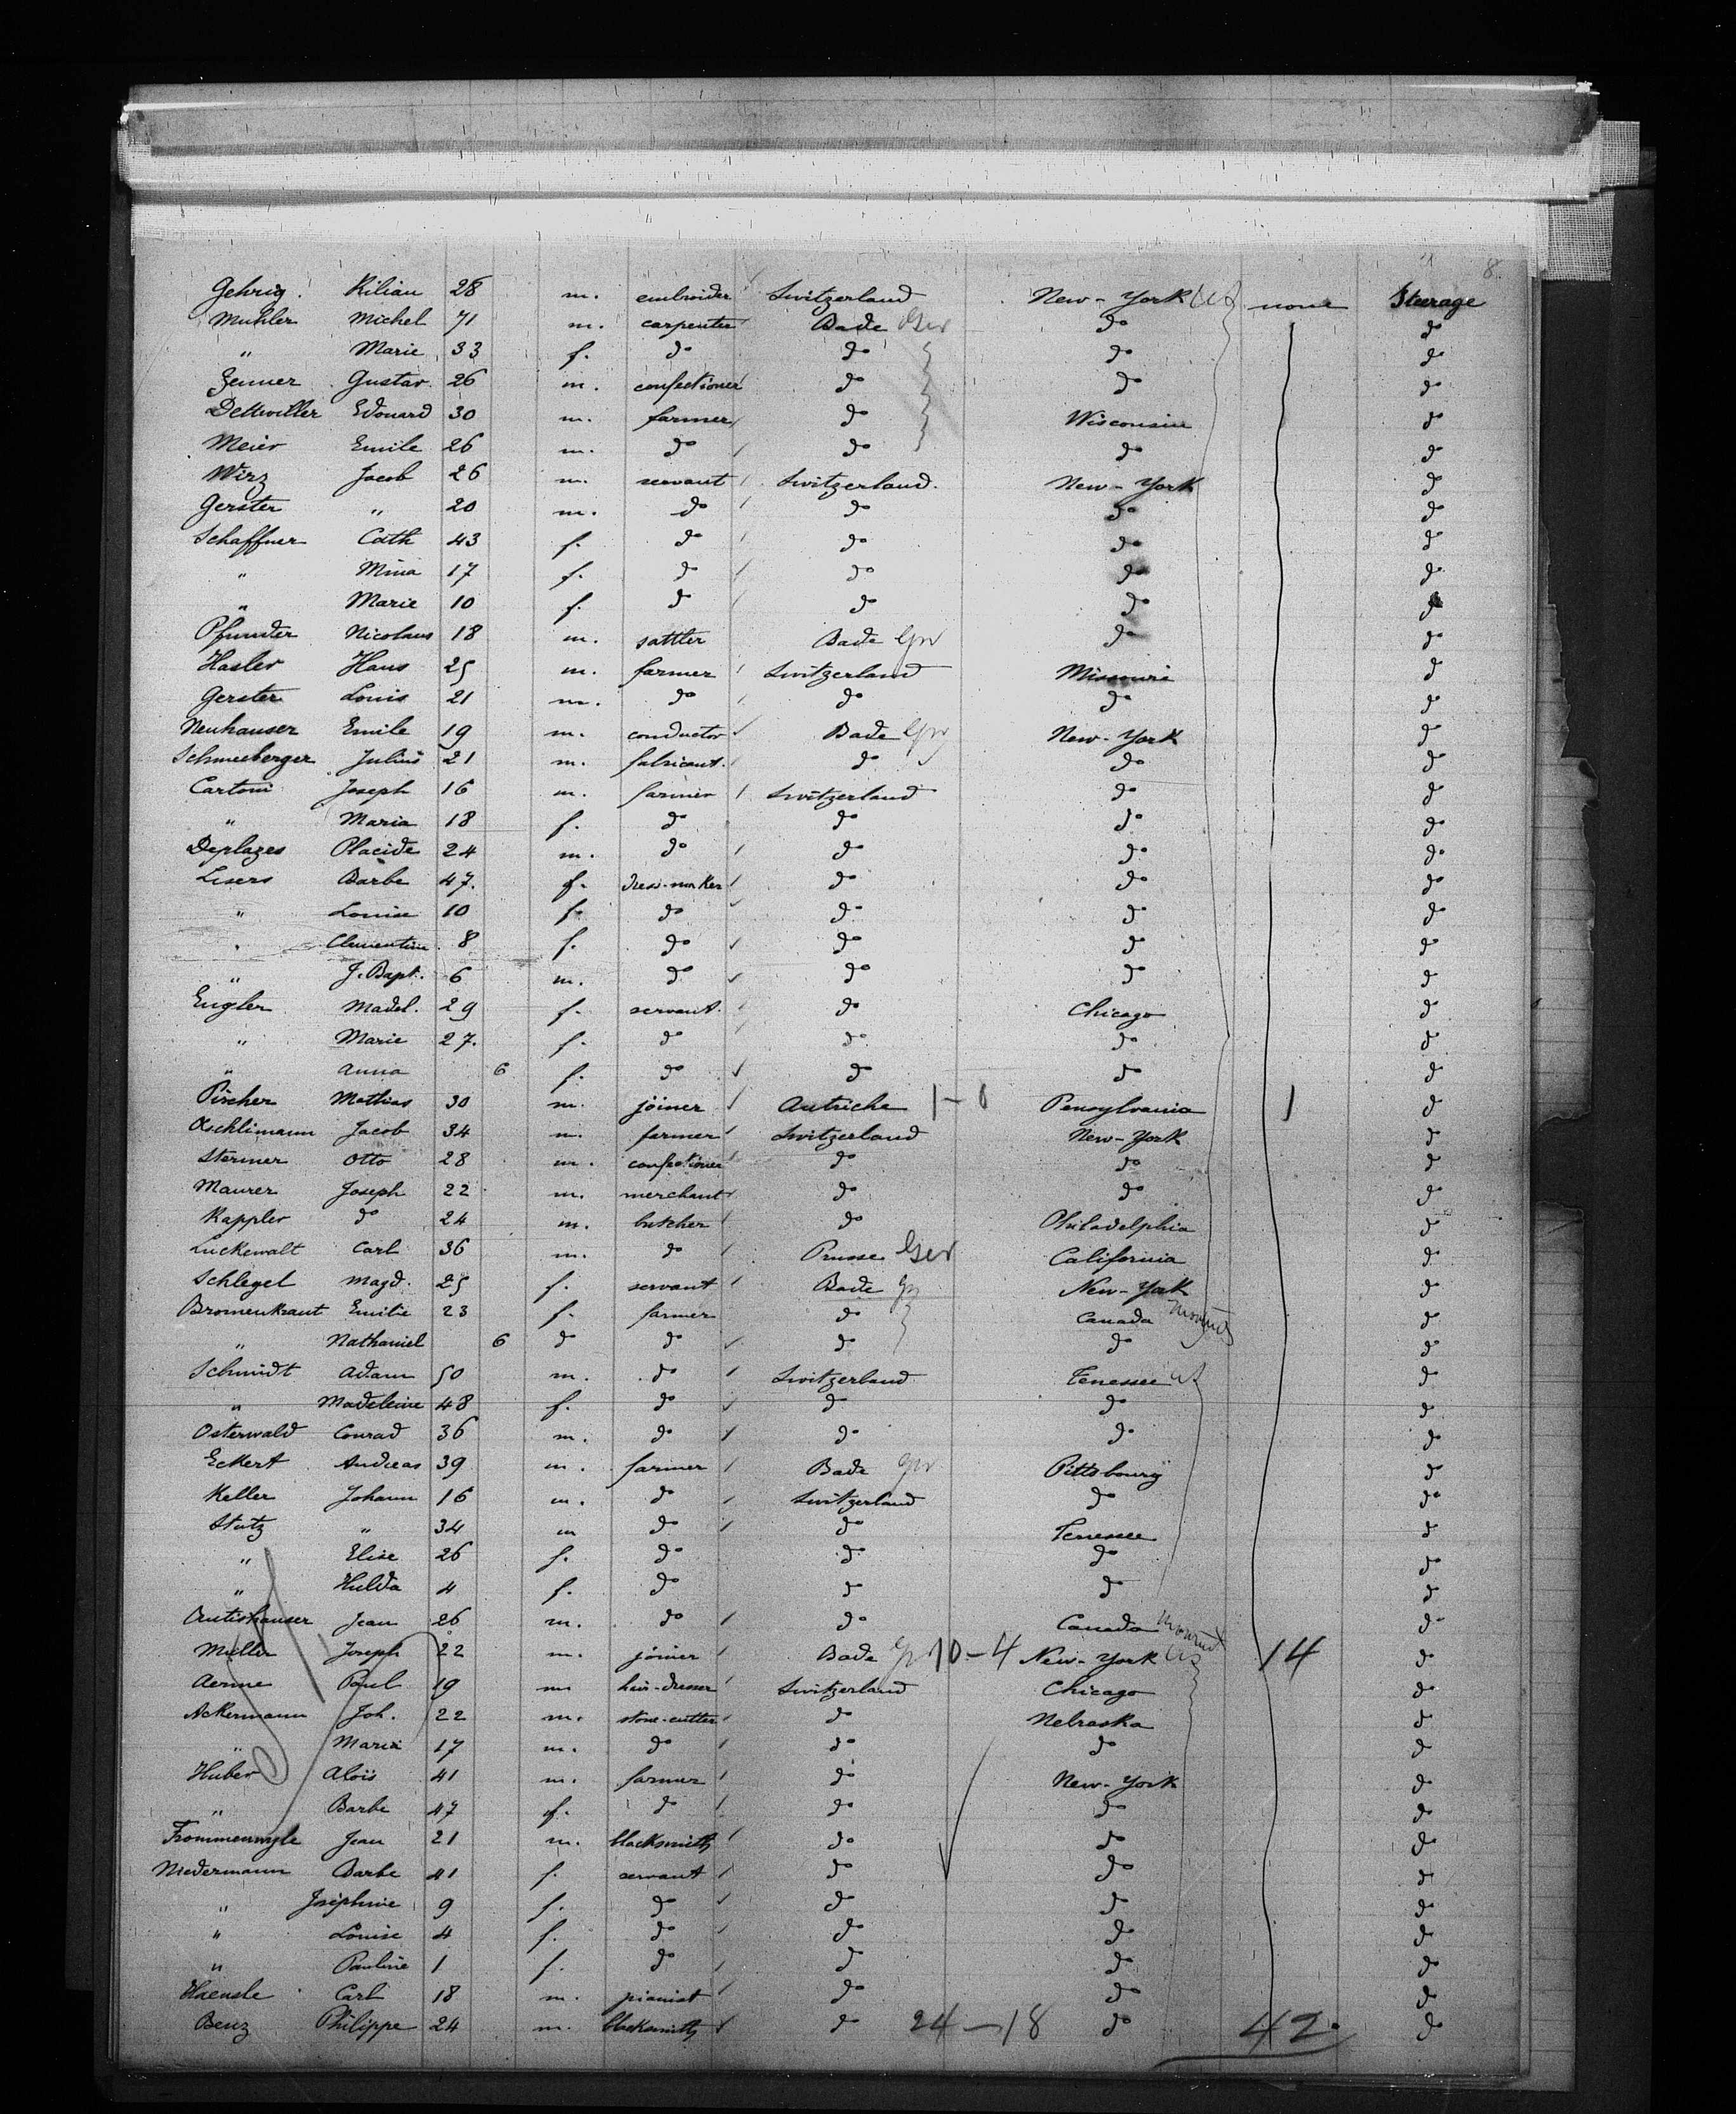 8.
Gehrig. Kilian 28 m. embroider Switzerland New-York US none Steerage
Muhler Michel 71 m. carpenter Bade Ger do do
" Marie 33 f. do do do do
Zenner Gustav. 26 m. confectioner do do do
Dettwiller Edouard 30 m. farmer do Wisconsin do
Meier Emile 26 m. do do do do
Wirz Jacob 26 m. servant Switzerland. New-York do
Gerster " 20 m. do do do do
Schaffner Cath 43 f. do do do do
" Mina 17 f. do do do do
" Marie 10 f. do do do do
Pfunder Nicolaus 18 m. sattler Bade Ger do do
Hasler Hans 25 m. farmer Switzerland Missouri do
Gerster Louis 21 m. do do do do
Neuhauser Emile 19 m. conductor Bade Ger New-York do
Schneeberger Julius 21 m. fabricant. do do do
Cartoni Joseph 16 m. farmer Switzerland do do
" Maria 18 f. do do do do
Deplazes Placide 24 m. do do do do
Lisers Barbe 47. f. dress-maker do do do
" Louise 10 f. do do do do
" Clementine 8 f. do do do do
" J. Bapt. 6 m. do do do do
Engler Madel. 29 f. servant. do Chicago do
" Marie 27. f. do do do do
" Anna 6 f. do do do do
Pircher Mathias 30 m. joiner Autriche 1-0 Pensylvania 1 do
Aschlimann Jacob 34 m. farmer Switzerland New-York do
Sterner Otto 28 m. confectioner do do do
Maurer Joseph 22 m. merchant do do do
Kappler do 24 m. butcher do Philadelphia do
Luckewalt Carl 36 m. do Prusse Ger California do
Schlegel Magd. 25 f. servant Bade Ger New-York do
Bromenkraut Emilie 23 f. farmer do Canada do
" Nathaniel 6 do do do do do
Schmidt Adam 50 m. do Switzerland Tenessee US do
" Madeleine 48 f. do do do do
Osterwald Conrad 36 m. do do do do
Eckert Andreas 39 m. farmer Bade Ger Pittsbourg do
Keller Johann 16 m. do Switzerland do do
Stutz " 34 m do do Tenessee do
" Elise 26 f. do do do do
" Hulda 4 f. do do do do
Autishauser Jean 26 m. do do Canada do
Muller Joseph 22 m. joiner Bade Ger 10-4 New-York US 14 do
Aenne Paul 19 m. hair-dresser Switzerland Chicago do
Ackermann Joh. 22 m. stone-cutter do Nebraska do
" Maria 17 m. do do do do
Huber Aloïs 41 m. farmer do New-York do
" Barbe 47 f. do do do do
Frommenwyle Jean 21 m. blacksmith do do do
Niedermann Barbe 41 f. servant do do do
" Josephine 9 f. do do do do
" Louise 4 f. do do do do
" Pauline 1 f. do do do do
Haensle Carl 18 m. pianist do do do
Benz Philippe 24 m. blacksmith do 24-18 do 42 do